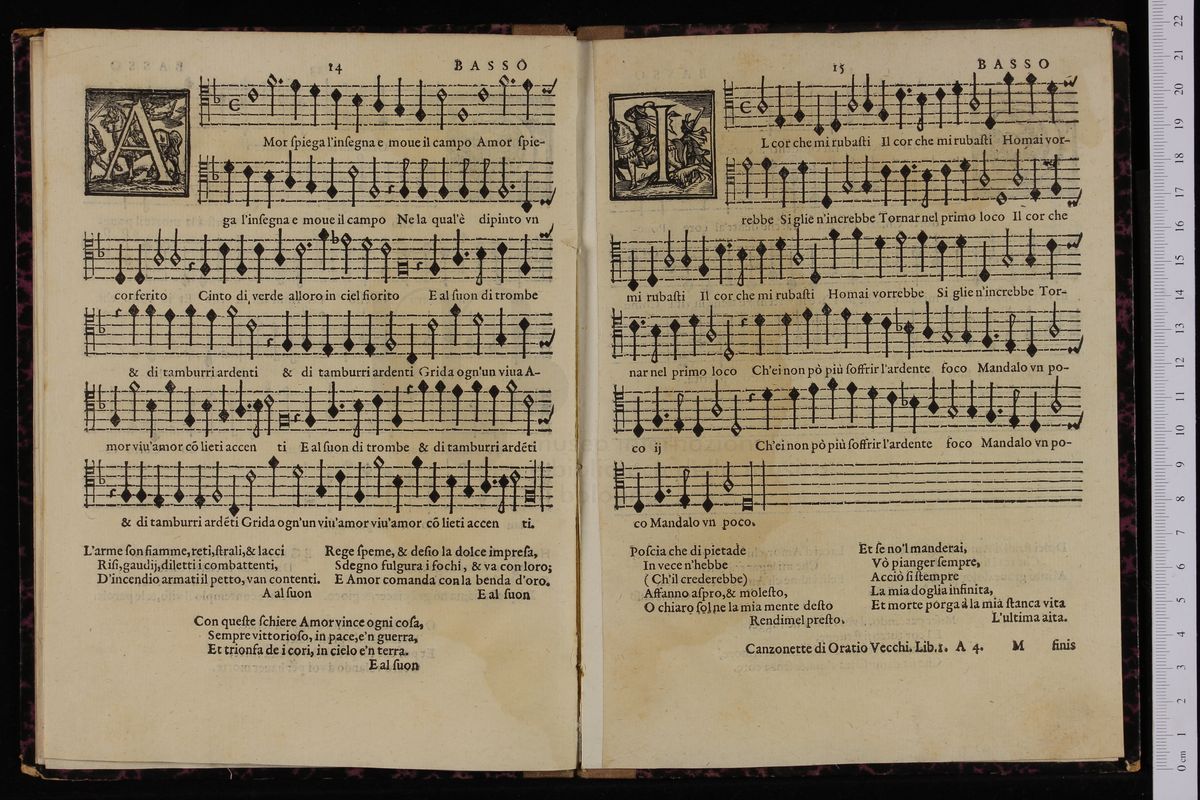 14
BASSO
A
Mor ſpiega l'inſegna e moue il campo Amor ſpie-
ga l'inſegna e moue il campo Ne la qual'è dipinto vn
cor ferito Cinto di verde alloro in ciel fiorito E al ſuon di trombe
& di tamburri ardenti & di tamburri ardenti Grida ogn'un viua A-
mor viu'amor cõ lieti accen ti E al ſuon di trombe & di tamburri ardẽti
& di tamburri ardẽti Grida ogn'un viu'amor viu'amor cõ lieti accen ti.
L'arme ſon fiamme, reti, ſtrali, & lacci
Riſi, gaudij, diletti i combattenti,
D'incendio armati il petto, van contenti.
A al ſuon
Rege ſpeme, & deſio la dolce impreſa,
Sdegno fulgura i fochi, & va con loro;
E Amor comanda con la benda d'oro.
E al ſuon
Con queſte ſchiere Amor vince ogni coſa,
Sempre vittorioſo, in pace, e'n guerra,
Et trionfa de i cori, in cielo e'n terra.
E al ſuon
15
BASSO
I
L cor che mi rubaſti Il cor che mi rubaſti Homai vor-
rebbe Si glie n'increbbe Tornar nel primo loco Il cor che
mi rubaſti Il cor che mi rubaſti Homai vorrebbe Si glie n'increbbe Tor-
nar nel primo loco Ch'ei non pò più ſoffrir l'ardente foco Mandalo vn po-
co ij Ch'ei non pò più ſoffrir l'ardente foco Mandalo vn po-
co Mandalo vn poco.
Poſcia che di pietade
In vece n'hebbe
(Ch'il crederebbe)
Affanno aſpro, & moleſto,
O chiaro ſol ne la mia mente deſto
Rendimel preſto.
Et ſe no'l manderai,
Vò pianger ſempre,
Acciò ſi ſtempre
La mia doglia infinita,
Et morte porga à la mia ſtanca vita
L'ultima aita.
Canzonette di Oratio Vecchi. Lib.1. A 4. M finis
0 cm 1 2 3 4 5 6 7 8 9 10 11 12 13 14 15 16 17 18 19 20 21 22